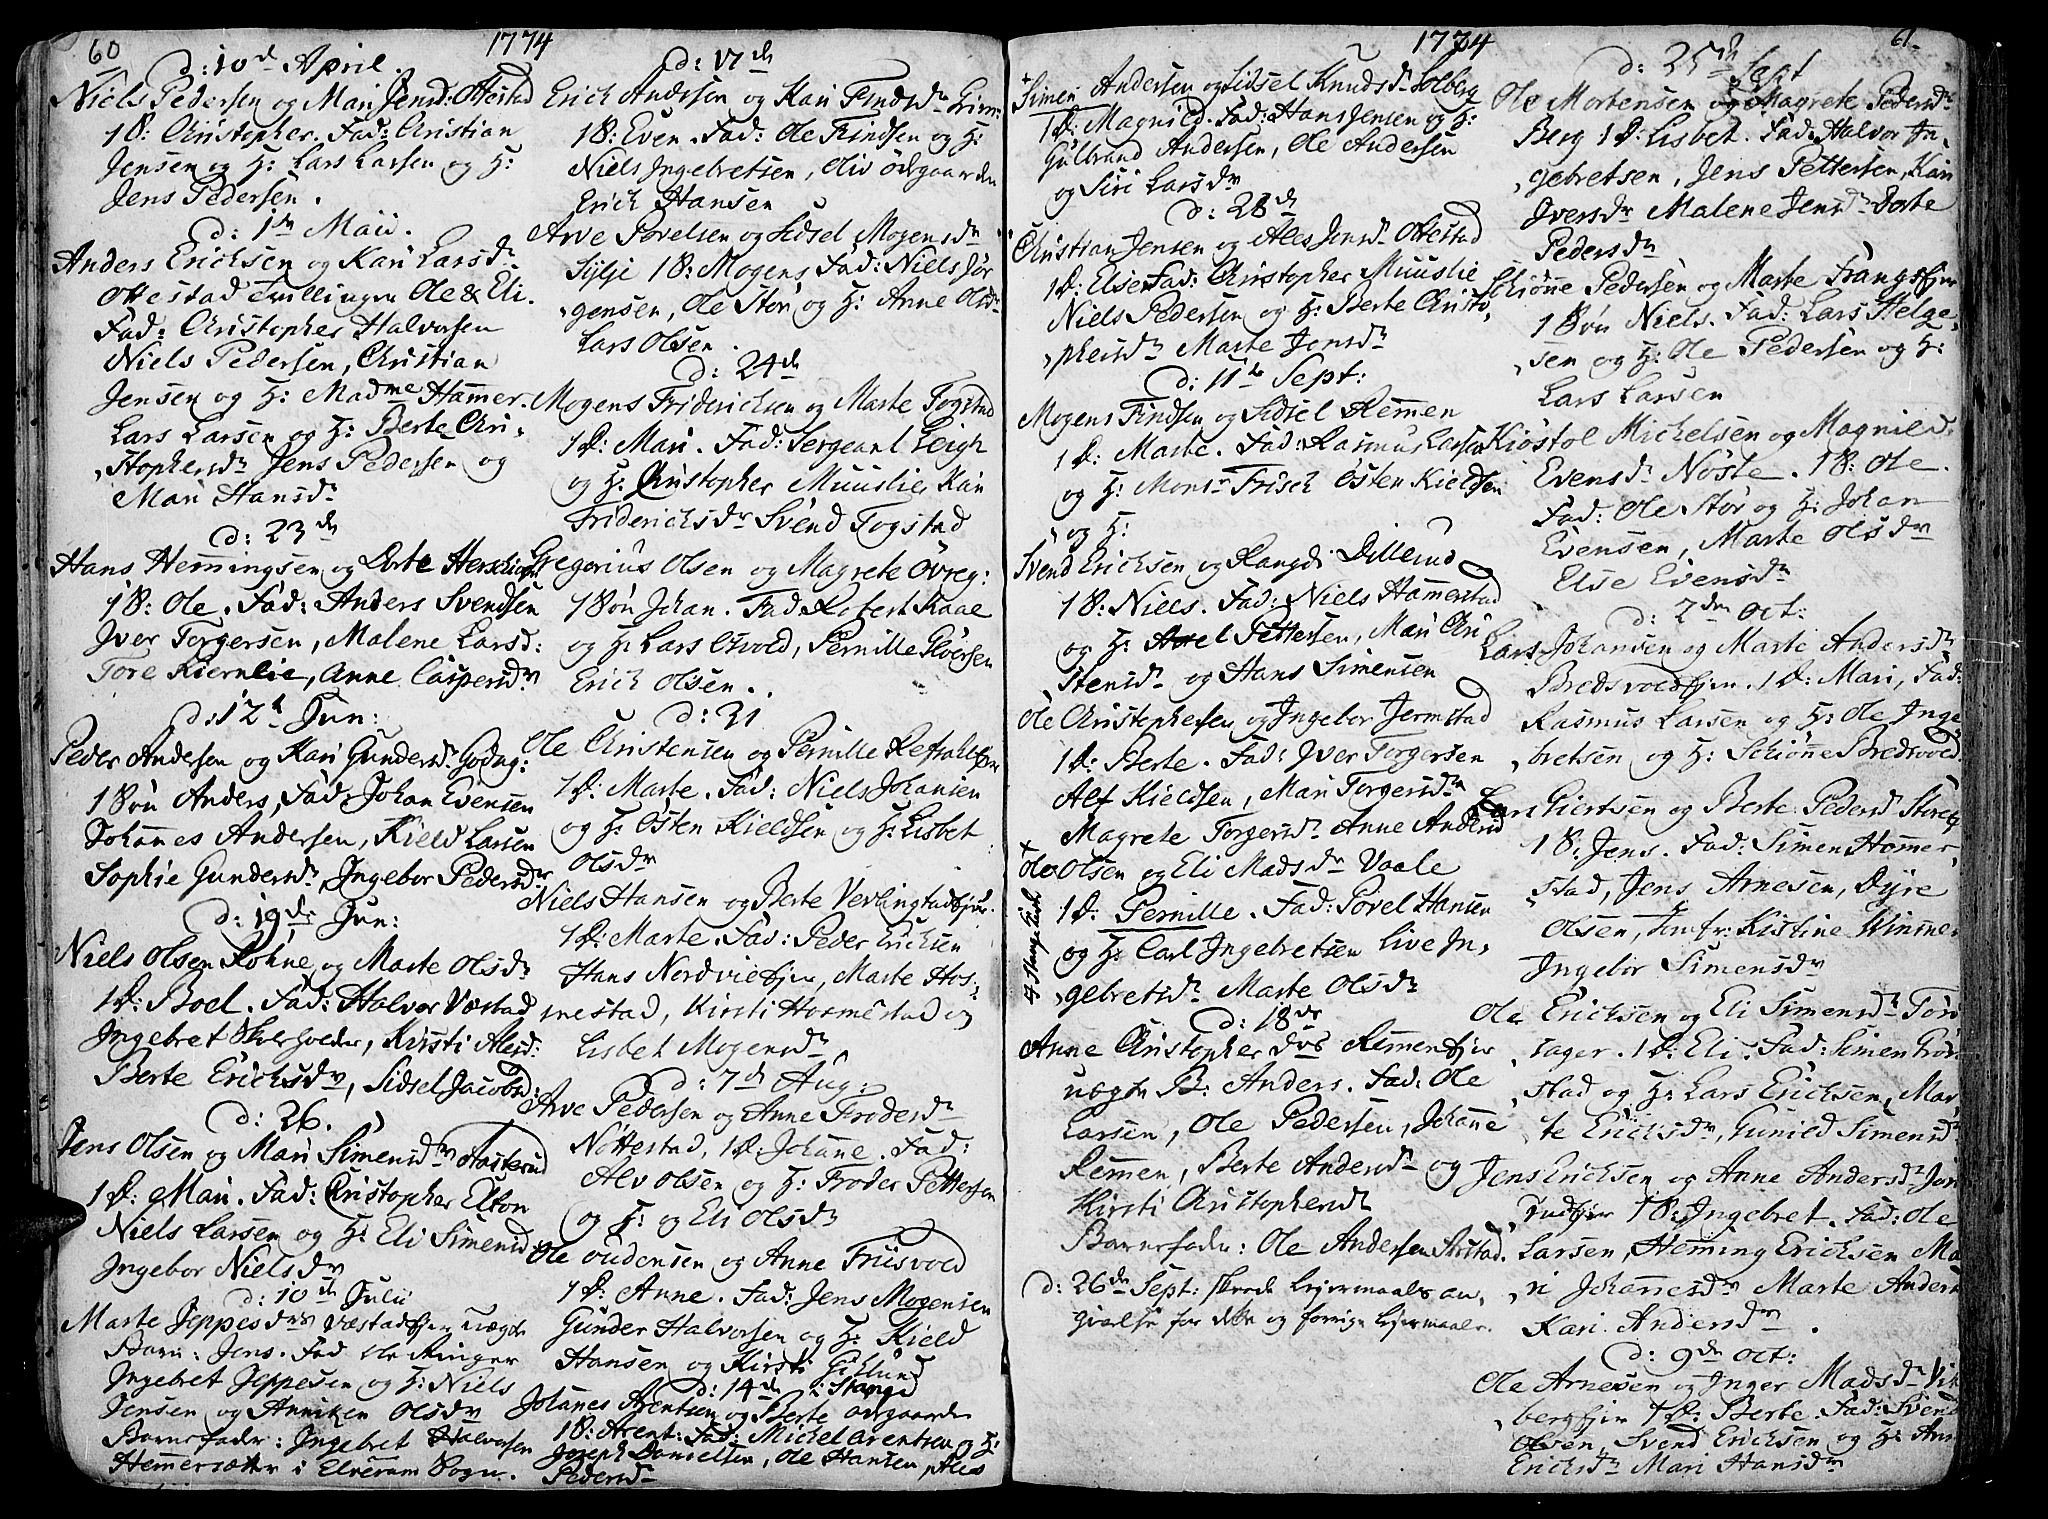 60
1774
d: 10d April.
Niels Pedersen og Mari Jensd: Ottestad
1 S: Christopher. Fad: Christian
Jensen og H: Lars Larsen og H:
Jens Pedersen.
d: 1ste Maii.
Anders Ericksen og Kari Larsdr
Ottestad Tvillinger Ole & Eli.
Fad: Christopher Halvorsen
Niels Pedersen, Christian
Jensen og H: Madme Hamer.
Lars Larsen og H: Berte Chri-
stophersdr Jens Pedersen og
Mari Hansdr
d: 23de
Hans Hemingsen og Dorte
1 S: Ole. Fad: Anders Svendsen
Iver Torgersen, Malene Larsd:
Tore Kiernlie, Anne Caspersdr
d: 12t Jun:
Peder Andersen og Kari Gundersdr Godag:
1 Søn Anders, Fad: Johan Evensen
Johannes Andersen, Kield Larsen
Sophie Gundersdr, Ingebor Pedersdr
d: 19de Jun:
Niels Olsen Røhne og Marte Olsdr
1 D: Boel. Fad: Halvor Væstad
Ingebret, Kirsti Alesd:
Berte Ericksdr, Sidsel Jacobsd:
d: 26.
Jens Olsen og Mari Simensdr Aasterud
1 D: Mari. Fad: Christopher Elton
Niels Larsen og H: Eli Simensd
Ingebor Nielsdr
d: 10de Julii
Marte Jeppesdrs Væstadejer uægte
Barn: Jens. Fad Ole Ringer
Ingebret Jeppesen og H: Niels
Jensen og Anniken Olsdr
Barnefader: Ingebret Halvorsen
Hemmersætter i Elverum Sogn.
d: 17de
Erich Andersen og Kari Findsdr
1 S: Even. Fad: Ole Findsen og H:
Niels Ingebretsen, Oliv Ødegaarden
Erich Hansen
Arve Povelsen og Sidsel Mogensdr
Sylje 1 S: Mogens Fad: Niels Jør
gensen, Ole Stør og H: Anne Olsdr
Lars Olsen.
d: 24de
Mogens Friderichsen og Marte Togstad
1 D: Mari. Fad: Sergeant Leigh
og H: Christopher Muuslie, Kari
Friderichsdr Svend Togstad
Gregorius Olsen og Magrete Øvreg:
1 Søn Johan. Fad: Robert Kaae
og H: Lars Opvold, Pernille Siversen
Erich Olsen.
d: 31
Ole Christensen og Pernille
1 D: Marte. Fad: Niels Johansen
og H: Østen Kieldsen og H: Lisbet
Olsdr
Niels Hansen og Berte
1 D: Marte. Fad: Peder Ericksen
Hans Nordviefier, Marte Hos-
mestad, Kirsti Hosmestad og
Lisbet Mogensdr
d: 7de Aug:
Arve Pedersen og Anne Frodersdr
Nøttestad, 1 D: Johanne. Fad:
Alv Olsen og H: Froder Pettersen
og H: og Eli Olsdr
Ole Oudensen og Anne Friisvold
1 D: Anne. Fad: Jens Mogensen
Gunder Halvorsen og H: Kield
Hansen og Kirsti Gieslund
d: 14de i Stange
Johanes Arentsen og Berte Ødegaarde
1 S: Arent: Fad: Michel Arentsen og H:
Joseph Danielsen, Ole Hansen, Ales
Pedersdr
1774
61
Simen Andersen og Sidsel Knudsdr Solberg
1 D: Magnild. Fad: Hans Jensen og H:
Gulbrand Andersen, Ole Andersen
og Siri Larsdr
d: 28de
Christian Jensen og Ales Jensdr Ottestad
1 D: Else Fad: Christopher Muuslie
Niels Pedersen og H: Berte Christo-
phersdr Marte Jensdr
d: 11te Sept:
Mogens Findsen og Sidsel Remen
1 D: Marte. Fad: Rasmus Larsen
og H: Monsr Frisch Østen Kieldsen
og H:
Svend Ericksen og Rangdi Dillerud
1 S: Niels. Fad: Niels Hamerstad
og H: Axel Pettersen, Mari Chri
stensdr og Hans Simensen
Ole Christophersen og Ingebor Jermstad
1 D: Berte. Fad: Iver Torgersen
Alf Kieldsen, Mari Torgersdr
Magrete Torgersdr Anne Andersd
Ole Olsen og Eli Madsdr Vaale
1 D: Pernille. Fad: Povel Hansen
og H: Carl Ingebretsen Live In-
gebretsdr Marte Olsdr
d: 18de
Anne Christopherdrs Remenejer
uægte B: Anders. Fad: Ole
Larsen, Ole Pedersen, Johanne
Remmen, Berte Andersdr og
Kirsti Christophersdr
Barnefader: Ole Andersen
d: 26de Sept: skeede Lejermaals an-
givelse for dette og forrige Lejermaal.
d: 25de Sept
Ole Mortensen og Magrete Pedersdr
Berg 1 D: Lisbet. Fad: Halvor In-
gebretsen, Jens Pettersen, Kari
Iversdr Malene Jensdr Dorte
Pedersdr
Schiønne Pedersen og Marte
1 Søn Niels. Fad: Lars Helge-
sen og H: Ole Pedersen og H:
Lars Larsen
Kiøstol Michelsen og Magnild
Evensdr Nøste. 1 S: Ole.
Fad: Ole Stør og H: Johan
Evensen, Marte Olsdr
Else Evensdr
d: 2den Oct:
Lars Johansen og Marte Andersdr
Bredsvoldejer. 1 D: Mari, Fad:
Rasmus Larsen og H: Ole Inge-
bretsen og H: Schiønne Bredsvold.
Lars Giertsen og Berte Pedersd
1 S: Jens. Fad: Simen Hommer-
stad, Jens Arnesen, Dyre
Olsen, Jmfr: Kistine Wimme
Ingebor Simensdr
Ole Ericksen og Eli Simensdr
tager. 1 D: Eli. Fad: Simen Grøn-
stad og H: Lars Ericksen, Mar-
te Ericksdr, Gunild Simensdr
Jens Ericksen og Anne Andersdr
1 S: Ingebret. Fad: Ole
Larsen, Hemming Ericksen Ma
ri Johannesdr Marte Anders
Kari Andersdr
d: 9de Oct:
Ole Arnesen og Inger Madsdr Vik
bergejer 1 D: Berte. Fad: Svend
Olsen, Svend Ericksen og H: Anne
Ericksdr Mari Hansdr